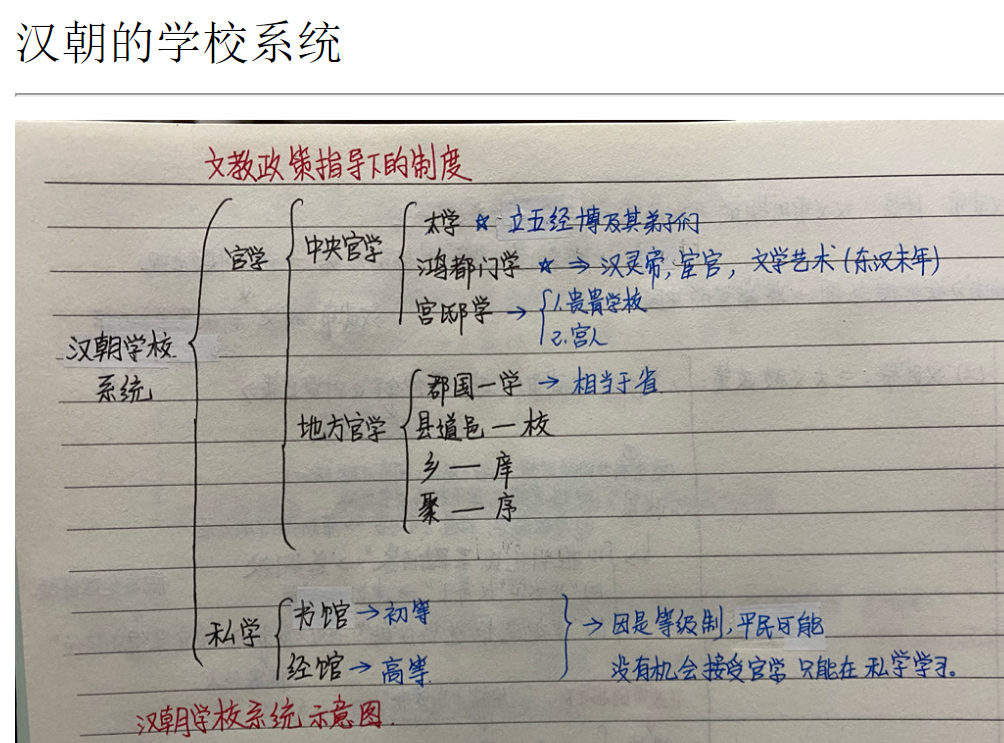 汉朝的学校系统
文教政策指导下的制度
汉朝学校
系统
官学
中央官学
太学 ☆ 立五经博及其弟子们
鸿都门学 ☆ ⇒ 汉灵帝,宦官,文学艺术(东汉末年)
宫邸学 → 1.贵胄学校
2.宫人
地方官学
郡国—学 → 相当于省
县道邑—校
乡—庠
聚—序
私学
书馆→初等
经馆→高等
→因是等级制,平民可能
没有机会接受官学 只能在私学学习。
汉朝学校系统示意图.